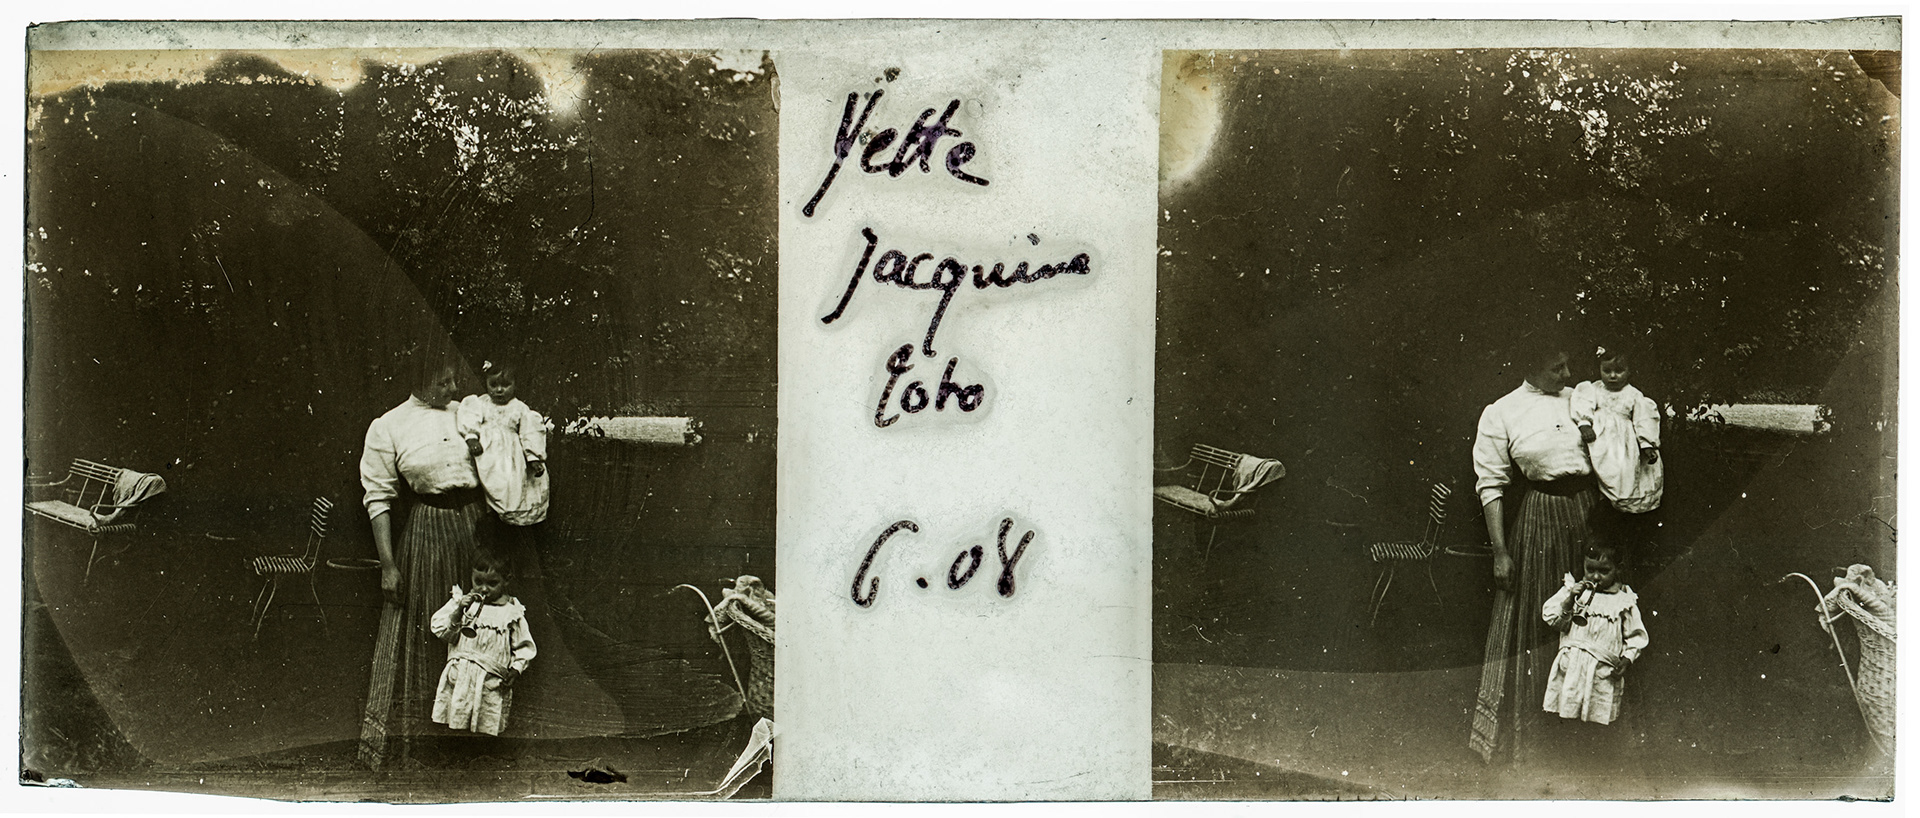 Yette
Jacquine
Toto
6.08